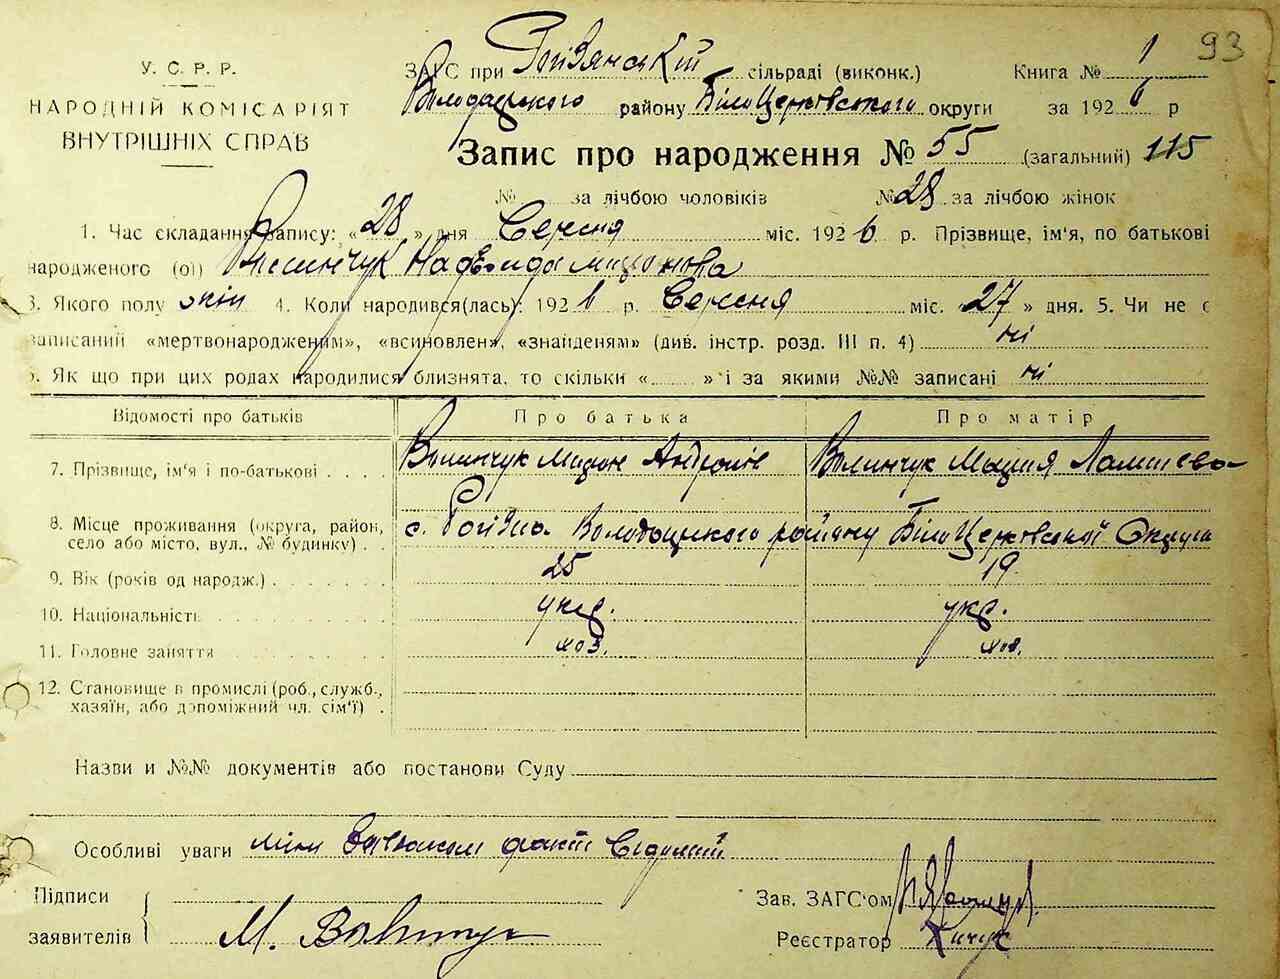 93
У. С. Р. Р.
НАРОДНІЙ КОМІСАРІЯТ
ВНУТРІШНІХ СПРАВ
ЗАГС при сільраді (виконк.) Книга № 1
Володарского району Білоцерковского округи за 1926 р
Запис про народження № 55 (загальний) 115
№ за лічбою чоловіків № 28 за лічбою жінок
1. Час складання запису: «28» дня Вересня міс. 1926 р. Прізвище, ім'я, по батькові
народженого (ої) Надежда
3. Якого полу жін 4. Коли народився(лась): 1926 р. Вересня міс. 27 » дня. 5. Чи не є
записаний «мертвонародженим», «всиновлен», «знайденям» (див. інстр. розд. III п. 4) ні
6. Як що при цих родах народилися близнята, то скільки « » і за якими №№ записані ні
Відомості про батьків Про батька Про матір
7. Прізвище, ім'я і по-батькові Волинчук Волинчук Мария
8. Місце проживання (округа, район, село або місто, вул., № будинку) с. Володарского району Білоцерковскої Округи
9. Вік (років од народж.) 25 19
10. Національність укр. укр.
11. Головне заняття
12. Становище в промислі (роб., служб., хазяїн, або допоміжний чл. сім'ї)
Назви и №№ документів або постанови Суду
Особливі уваги факт
Підписи
заявителів М.
Зав. ЗАГС'ом
Реєстратор